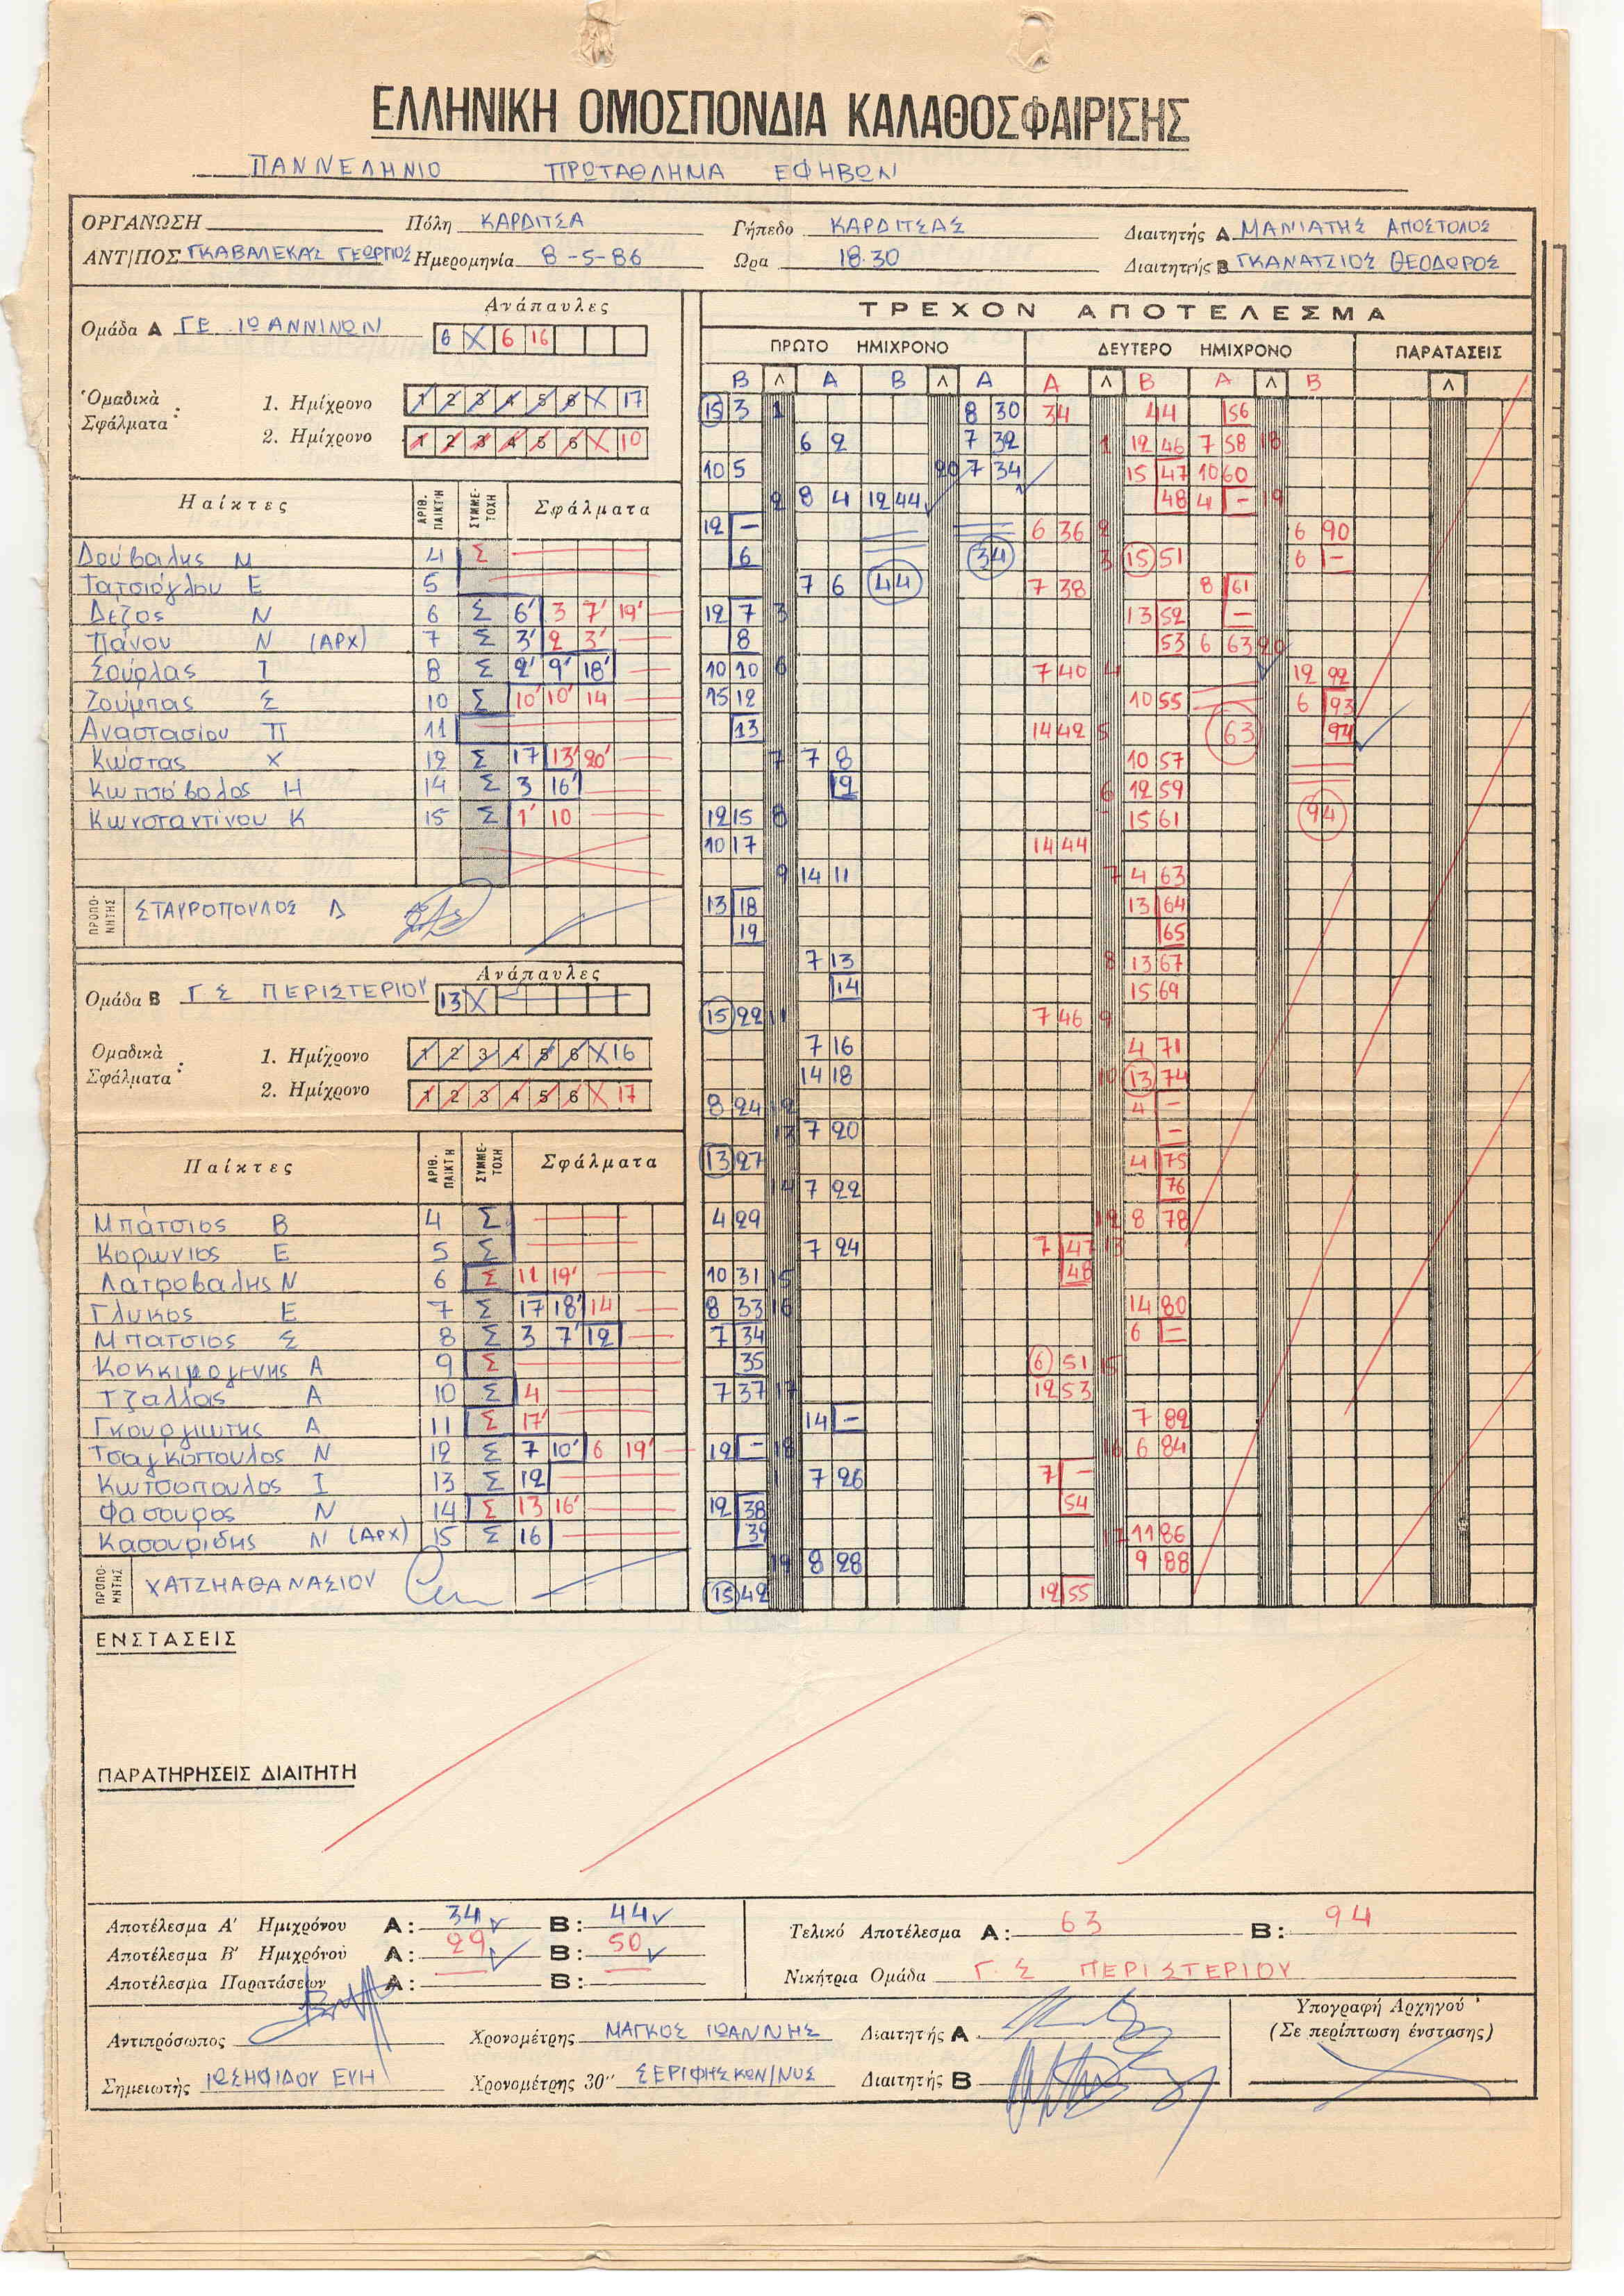 ΕΛΛΗΝΙΚΗ ΟΜΟΣΠΟΝΔΙΑ ΚΑΛΑΘΟΣΦΑΙΡΙΣΗΣ
ΠΑΝΝΕΛΗΝΙΟ ΠΡΩΤΑΘΛΗΜΑ ΕΦΗΒΩΝ
ΟΡΓΑΝΩΣΗ Πόλη ΚΑΡΔΙΤΣΑ Γήπεδο ΚΑΡΔΙΤΣΑΣ Διαιτητής Α ΜΑΝΙΑΤΗΣ ΑΠΟΣΤΟΛΟΣ
ΑΝΤ/ΠΟΣ ΓΚΑΒΑΛΕΚΑΣ ΓΕΩΡΓΙΟΣ Ημερομηνία 8-5-86 Ωρα 18.30 Διαιτητής Β ΓΚΑΝΑΤΖΙΟΣ ΘΕΟΔΩΡΟΣ
Ανάπαυλες
Ομάδα Α ΓΕ ΙΩΑΝΝΙΝΩΝ 6 X 6 16
Ομαδικὰ Σφάλματα :
1. Ημίχρονο 1 2 3 4 5 6 X 17
2. Ημίχρονο 1 2 3 4 5 6 X 10
Παίκτες ΑΡΙΘ. ΠΑΙΚΤΗ ΣΥΜΜΕΤΟΧΗ Σφάλματα
Δούβαλης Μ 4 Σ
Τατσιόγλου Ε 5
Δεζος Ν 6 Σ 6' 3 7' 19'
Πάνου Ν (ΑΡΧ) 7 Σ 3' 2 3'
Σούρλας Ι 8 Σ 2' 9' 18'
Ζούμπας Σ 10 Σ 10' 10' 14
Αναστασίου Π 11
Κώστας Χ 12 Σ 17 13' 20'
Κωτσόβολος Η 14 Σ 3 16'
Κωνσταντίνου Κ 15 Σ 1' 10
ΠΡΟΠΟΝΗΤΗΣ ΣΤΑΥΡΟΠΟΥΛΟΣ Δ
Ανάπαυλες
Ομάδα Β Γ Σ ΠΕΡΙΣΤΕΡΙΟΥ 13 X
Ομαδικὰ Σφάλματα :
1. Ημίχρονο 1 2 3 4 5 6 X 16
2. Ημίχρονο 1 2 3 4 5 6 X 17
Παίκτες ΑΡΙΘ. ΠΑΙΚΤΗ ΣΥΜΜΕΤΟΧΗ Σφάλματα
Μπάτσιος Β 4 Σ
Κορωνιος Ε 5 Σ
Λατροβαλης Ν 6 Σ 11 19'
Γλυκος Ε 7 Σ 17 18' 14
Μπατσιος Σ 8 Σ 3 7' 12
Α 9 Σ
Τζαλλας Α 10 Σ 4
Α 11 Σ 17'
Τσαγκοπουλος Ν 12 Σ 7 10' 6 19'
Κωτσοπουλος Ι 13 Σ 12
Φασουρος Ν 14 Σ 13 16'
Κασουριδης Ν (ΑΡΧ) 15 Σ 16
ΠΡΟΠΟΝΗΤΗΣ ΧΑΤΖΗΑΘΑΝΑΣΙΟΥ
ΤΡΕΧΟΝ ΑΠΟΤΕΛΕΣΜΑ
ΠΡΩΤΟ ΗΜΙΧΡΟΝΟ ΔΕΥΤΕΡΟ ΗΜΙΧΡΟΝΟ ΠΑΡΑΤΑΣΕΙΣ
Β Λ Α Β Λ Α Α Λ Β Α Λ Β Λ
15 3 1 8 30 34 44 56
6 2 7 32 1 12 46 7 58 18
10 5 20 7 34 15 47 10 60
2 8 4 12 44 48 4 – 19
12 – 6 36 2 6 90
6 34 3 15 51 6 –
7 6 44 7 38 8 61
12 7 3 13 52 –
8 53 6 63 20
10 10 6 7 40 4 12 92
15 12 10 55 6 93
13 14 42 5 63 94
7 7 8 10 57
9 6 12 59
12 15 8 15 61 94
10 17 14 44
9 14 11 7 4 63
13 18 13 64
19 65
7 13 8 13 67
14 15 69
15 22 11 7 46 9
7 16 4 71
14 18 10 13 74
8 24 12 4 –
13 7 20 –
13 27 4 75
14 7 22 76
4 29 12 8 78
7 24 7 47 13
10 31 15 48
8 33 16 14 80
7 34 6 –
35 6 51 15
7 37 17 12 53
14 – 7 82
12 – 18 16 6 84
7 26 7 –
12 38 54
39 17 11 86
19 8 28 9 88
15 42 12 55
ΕΝΣΤΑΣΕΙΣ
ΠΑΡΑΤΗΡΗΣΕΙΣ ΔΙΑΙΤΗΤΗ
Αποτέλεσμα Α' Ημιχρόνου Α: 34 Β: 44
Αποτέλεσμα Β' Ημιχρόνου Α: 29 Β: 50
Αποτέλεσμα Παρατάσεων Α: Β:
Τελικό Αποτέλεσμα Α: 63 Β: 94
Νικήτρια Ομάδα Γ. Σ ΠΕΡΙΣΤΕΡΙΟΥ
Αντιπρόσωπος Χρονομέτρης ΜΑΓΚΟΣ ΙΩΑΝΝΗΣ Διαιτητής Α
Σημειωτής ΙΩΣΗΦΙΔΟΥ ΕΥΗ Χρονομέτρης 30'' ΣΕΡΙΦΗΣ ΚΩΝ/ΝΟΣ Διαιτητής Β
Υπογραφή Αρχηγού
(Σε περίπτωση ένστασης)